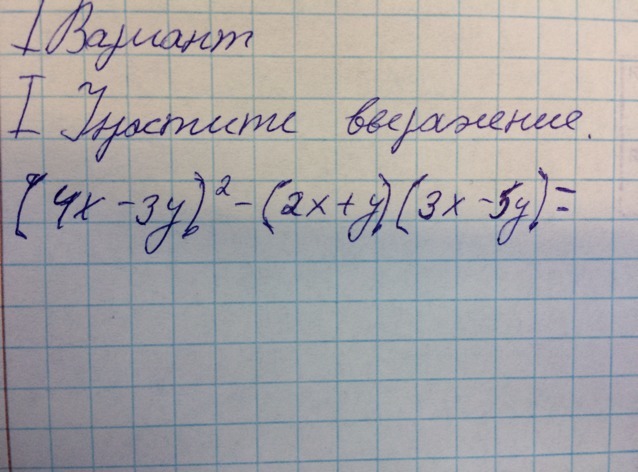 I Вариант
I Упростите выражение.
(4x-3y)²-(2x+y)(3x-5y)=